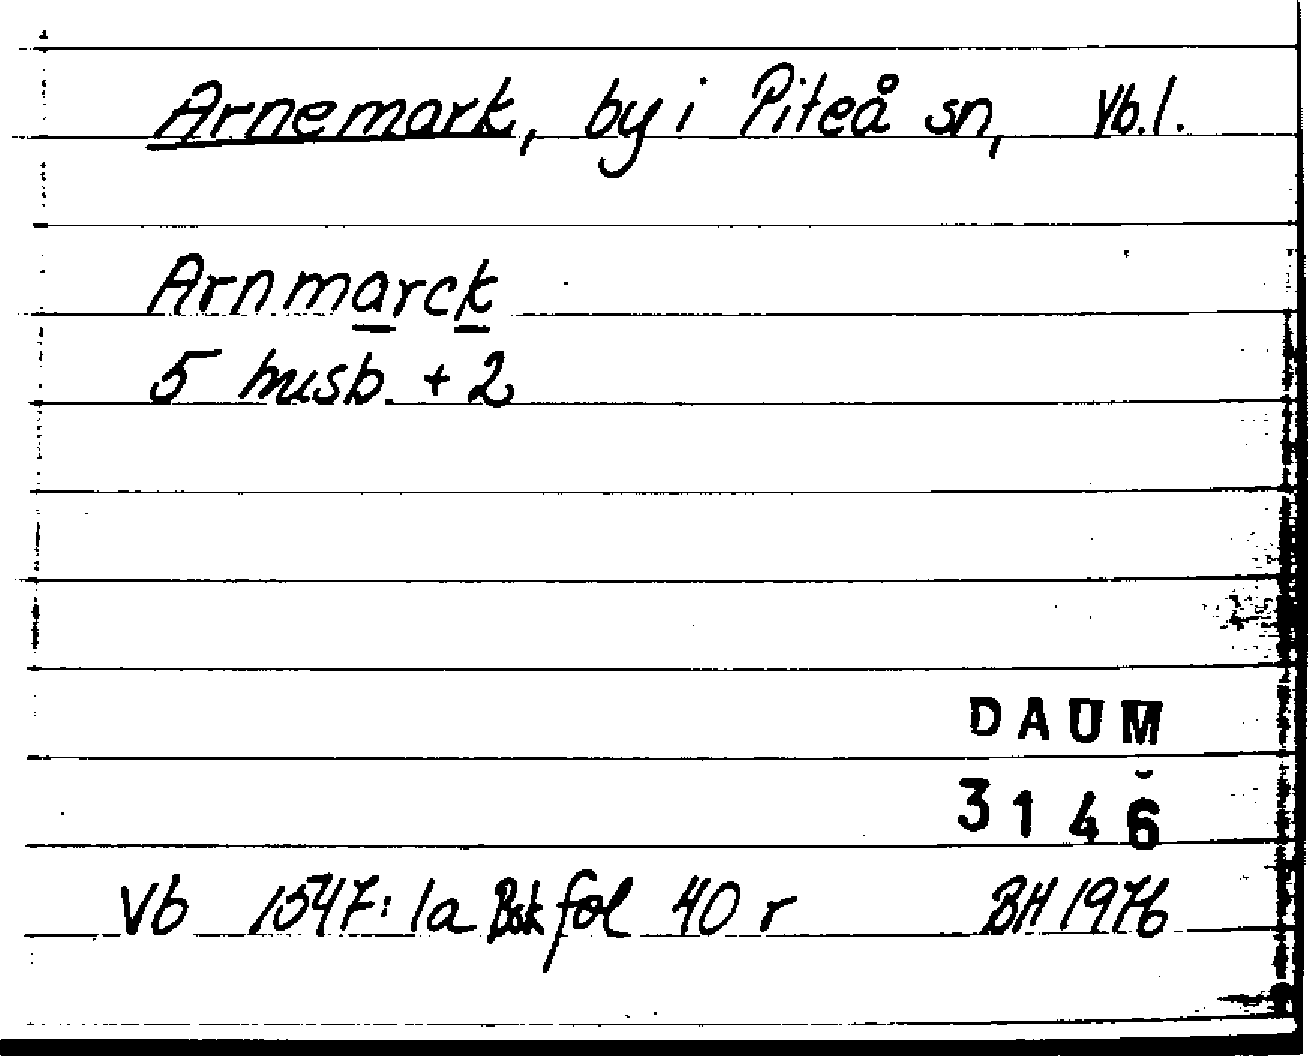 Arnemark, by i Piteå sn, Vb.l.
Arnmarck
5 husb. + 2
DAUM
3146
Vb 1547: 1a Bsk fol 40 r BH 1976